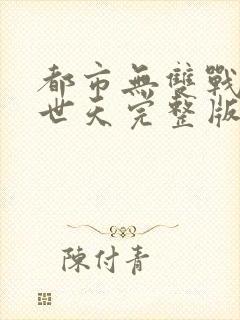 都市無雙戰
世天完整版
陳付青